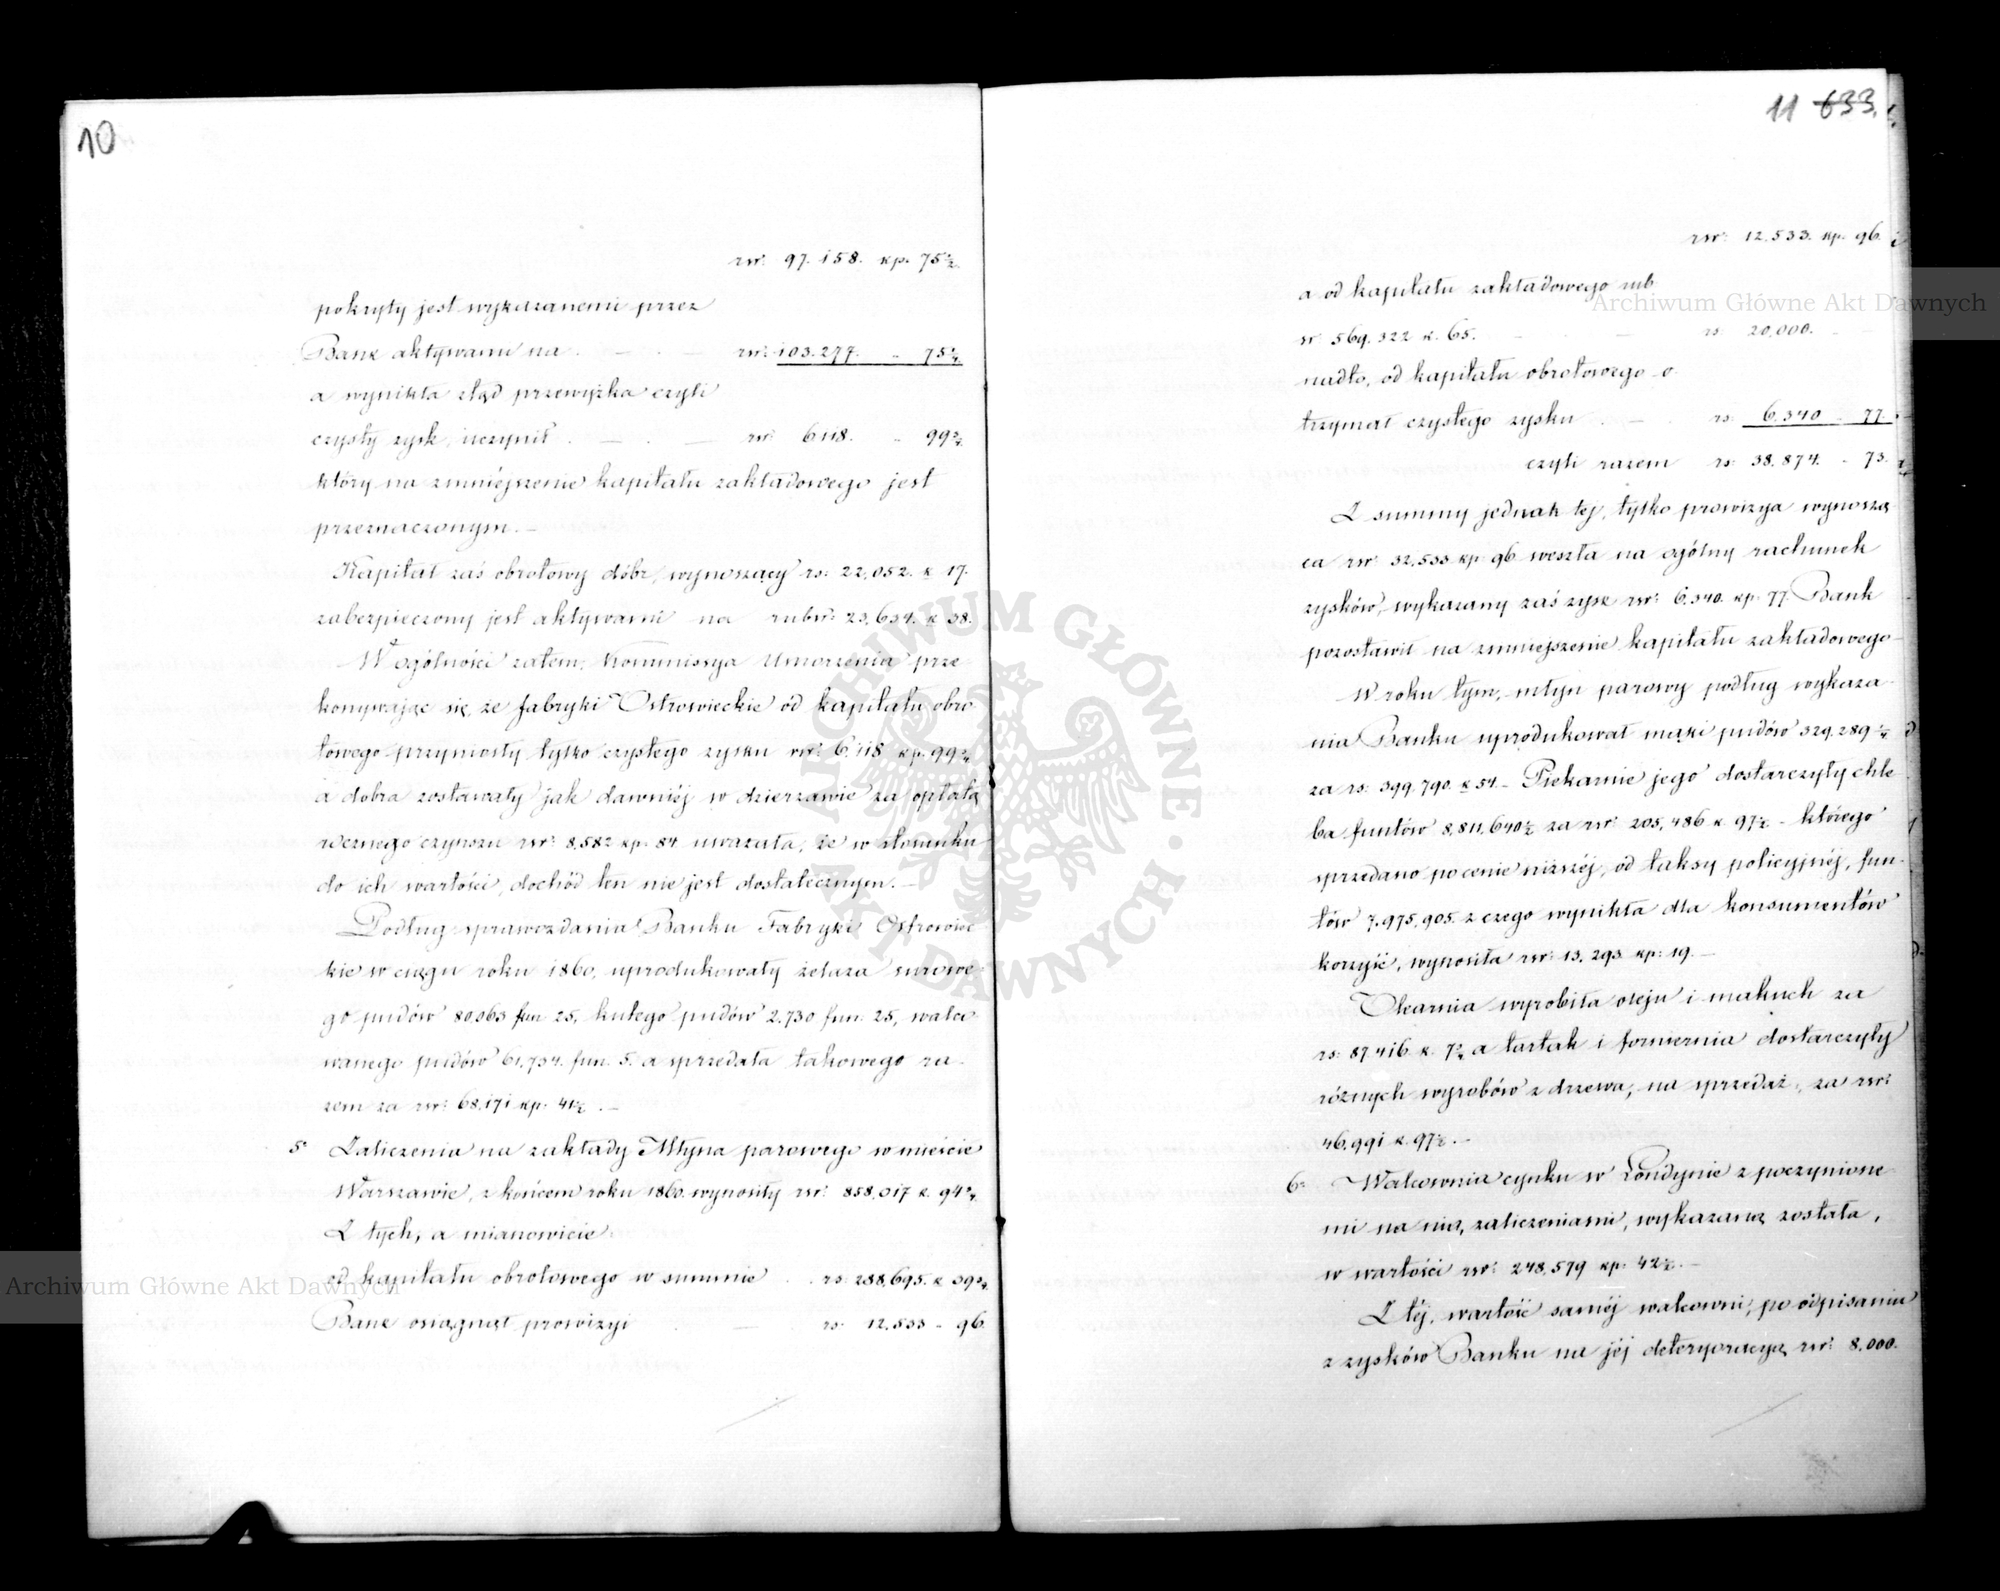 10
rsr: 97.158. kp. 75½
pokryty jest wykazanemi przez
Bank aktywami na . — . — rsr: 103.277. „ 75¼
a wynikła ztąd przewyżka czyli
czysty zysk, uczynił . — . — rsr: 6118. „ 99¾
który na zmniejszenie kapitału zakładowego jest
przeznaczonym. —
Kapitał zaś obrotowy dóbr, wynoszący rs: 22,052. k 17.
zabezpieczony jest aktywami na rubsr: 23,634. k 38.
W ogólności zatem, Kommissya Umorzenia prze-
konywając się, że fabryki Ostrowieckie od kapitału obro-
towego przyniosły tylko czystego zysku rsr: 6.118 kp. 99¾
a dobra zostawały jak dawniéj w dzierżawie za opłatą
rocznego czynszu rsr: 8,582 kp: 84 uważała, że w stosunku
do ich wartości, dochód ten nie jest dostatecznym. —
Podług sprawozdania Banku Fabryki Ostrowiec-
kie w ciągu roku 1860, uprodukowały żelaza surowe-
go pudów 80,063 fun: 25, kutego pudów 2.730 fun: 25, walco-
wanego pudów 61,734. fun. 5. a sprzedała takowego ra-
zem za rsr: 68,171 kp: 41½ . —
5° Zaliczenia na zakłady Młyna parowego w mieście
Warszawie, z końcem roku 1860. wynosiły rsr: 858,017 k. 94¾
Z tych, a mianowicie:
od kapitału obrotowego w summie . . rs: 288,695. k 39¾
Bank osiągnął prowizyi . — rs: 12,533 „ 96.
11 633.
rsr: 12.533. kp. 96.
a od kapitału zakładowego rub
sr 569.322 k. 65. — — rs: 20,000. —
nadto, od kapitału obrotowego o-
trzymał czystego zysku . — . rs: 6.340 „ 77.
czyli razem rs: 38.874. „ 73.
Z summy jednak tej, tylko prowizya wynoszą-
ca rsr: 32,533 kp: 96 weszła na ogólny rachunek
zysków, wykazany zaś zysk rsr: 6.340. kp: 77. Bank
pozostawił na zmniejszenie kapitału zakładowego
W roku tym, młyn parowy podług wykaza-
nia Banku uprodukował mąki pudów 329.289¼
za rs: 399,790. k 54 – Piekarnie jego dostarczyły chle-
ba funtów 8,811,640½ za rsr: 205,486 k. 97½ – którego
sprzedano po cenie niższéj, od taksy policyjnéj, fun-
tów 7.975,905. z czego wynikła dla konsumentów
korzyść, wynosiła rsr: 13,293. kp: 19. —
Olearnia wyrobiła oleju i makuch za
rs: 87.416 k. 7¾ a tartak i forniernia dostarczyły
różnych wyrobów z drzewa, na sprzedaż, za rsr:
46.991 k. 97½. —
6° Walcownia cynku w Londynie z poczynione-
mi na nią, zaliczeniami, wykazaną została,
w wartości rsr: 248,579 kp: 42½. —
Z téj, wartość saméj walcowni, po odpisaniu
z zysków Banku na jéj deterioracyą rsr: 8.000.
Archiwum Główne Akt Dawnych
Archiwum Główne Akt Dawnych
ARCHIWUM GŁÓWNE AKT DAWNYCH